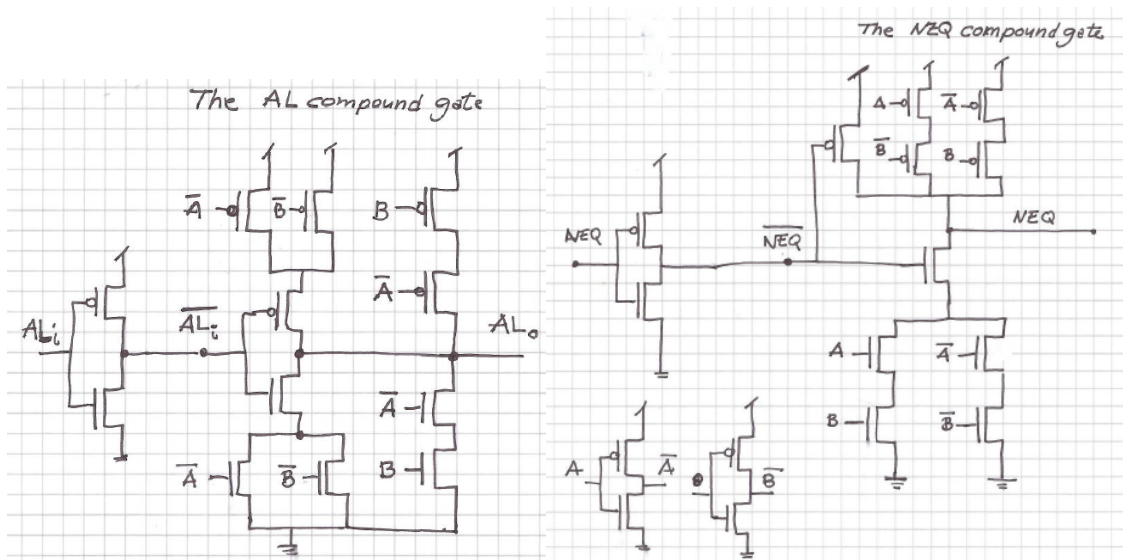 The AL compound gate
A̅
B̅
B
A̅
ALi
A̅L̅i̅
ALo
A̅
A̅
B̅
B
The NEQ compound gate
A
A̅
B̅
B
NEQ
N̅E̅Q̅
NEQ
A
A̅
B
B̅
A
A̅
B̅